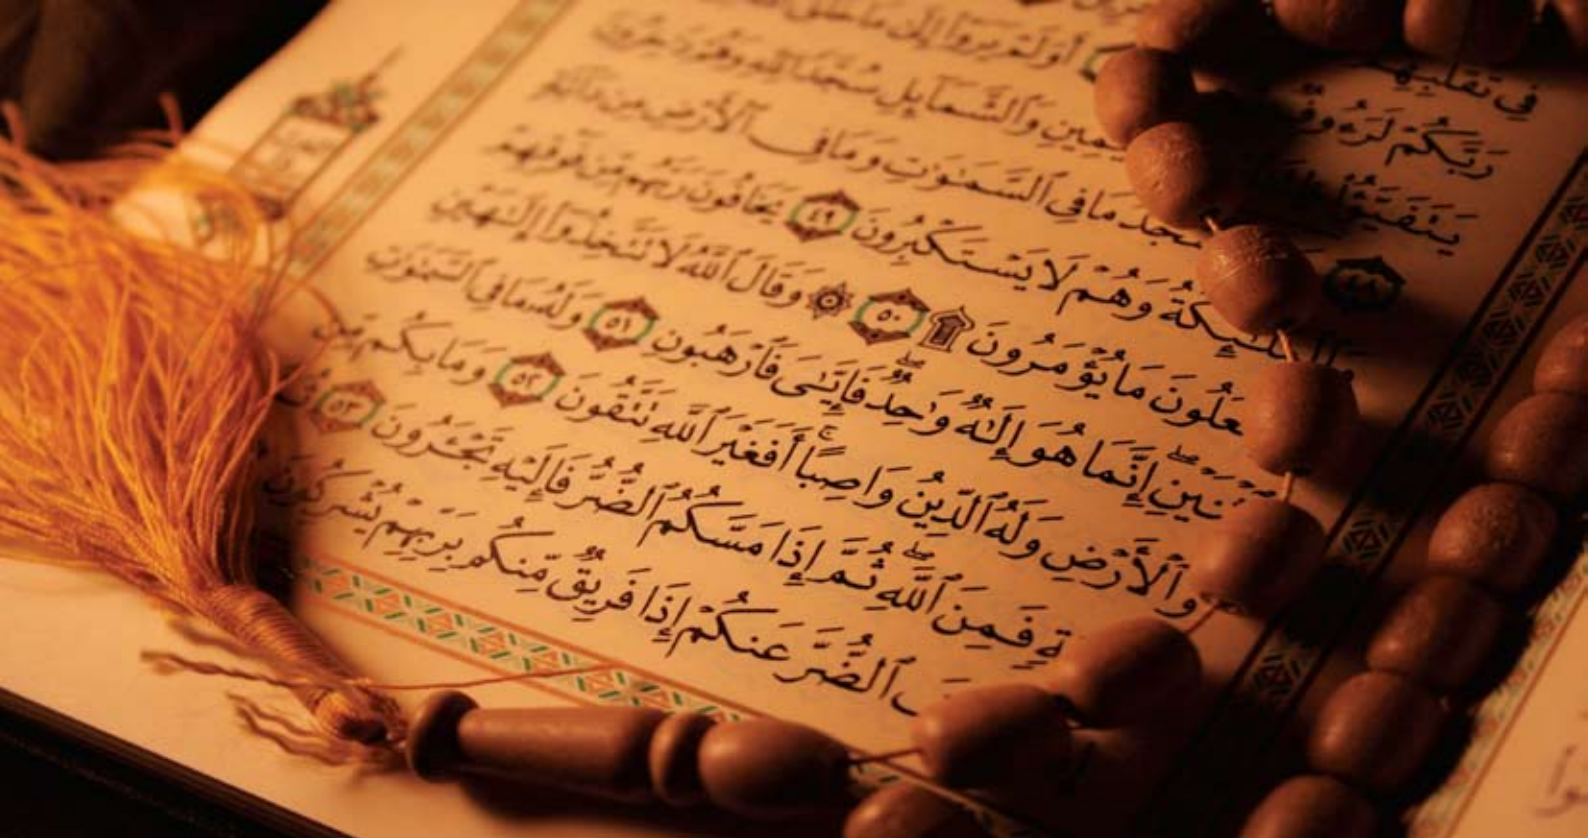 فِي تَقَلُّبِهِمْ
رَبَّكُمْ لَرَءُوفٌ أَوَلَمْ يَرَوْا۟ إِلَىٰ مَا خَلَقَ
يَتَفَيَّؤُا۟ ـيَمِينِ وَٱلشَّمَآئِلِ سُجَّدًا لِّلَّهِ وَهُمْ دَٰخِرُونَ
٤٨ ـسْجُدُ مَا فِي ٱلسَّمَٰوَٰتِ وَمَا فِي ٱلْأَرْضِ مِن دَآبَّةٍ
ٱلْمَلَٰٓئِكَةُ وَهُمْ لَا يَسْتَكْبِرُونَ ٤٩ يَخَافُونَ رَبَّهُم مِّن فَوْقِهِمْ
ـعَلُونَ مَا يُؤْمَرُونَ ۩ ٥٠ ۞ وَقَالَ ٱللَّهُ لَا تَتَّخِذُوٓا۟ إِلَٰهَيْنِ
ـنَيْنِ ۖ إِنَّمَا هُوَ إِلَٰهٌ وَٰحِدٌ ۖ فَإِيَّٰىَ فَٱرْهَبُونِ ٥١ وَلَهُۥ مَا فِي ٱلسَّمَٰوَٰتِ
وَٱلْأَرْضِ وَلَهُ ٱلدِّينُ وَاصِبًا ۚ أَفَغَيْرَ ٱللَّهِ تَتَّقُونَ ٥٢ وَمَا بِكُم مِّن
ـةٍ فَمِنَ ٱللَّهِ ۖ ثُمَّ إِذَا مَسَّكُمُ ٱلضُّرُّ فَإِلَيْهِ تَجْـَٔرُونَ ٥٣ ثُمَّ
ـفَ ٱلضُّرَّ عَنكُمْ إِذَا فَرِيقٌ مِّنكُم بِرَبِّهِمْ يُشْرِكُونَ